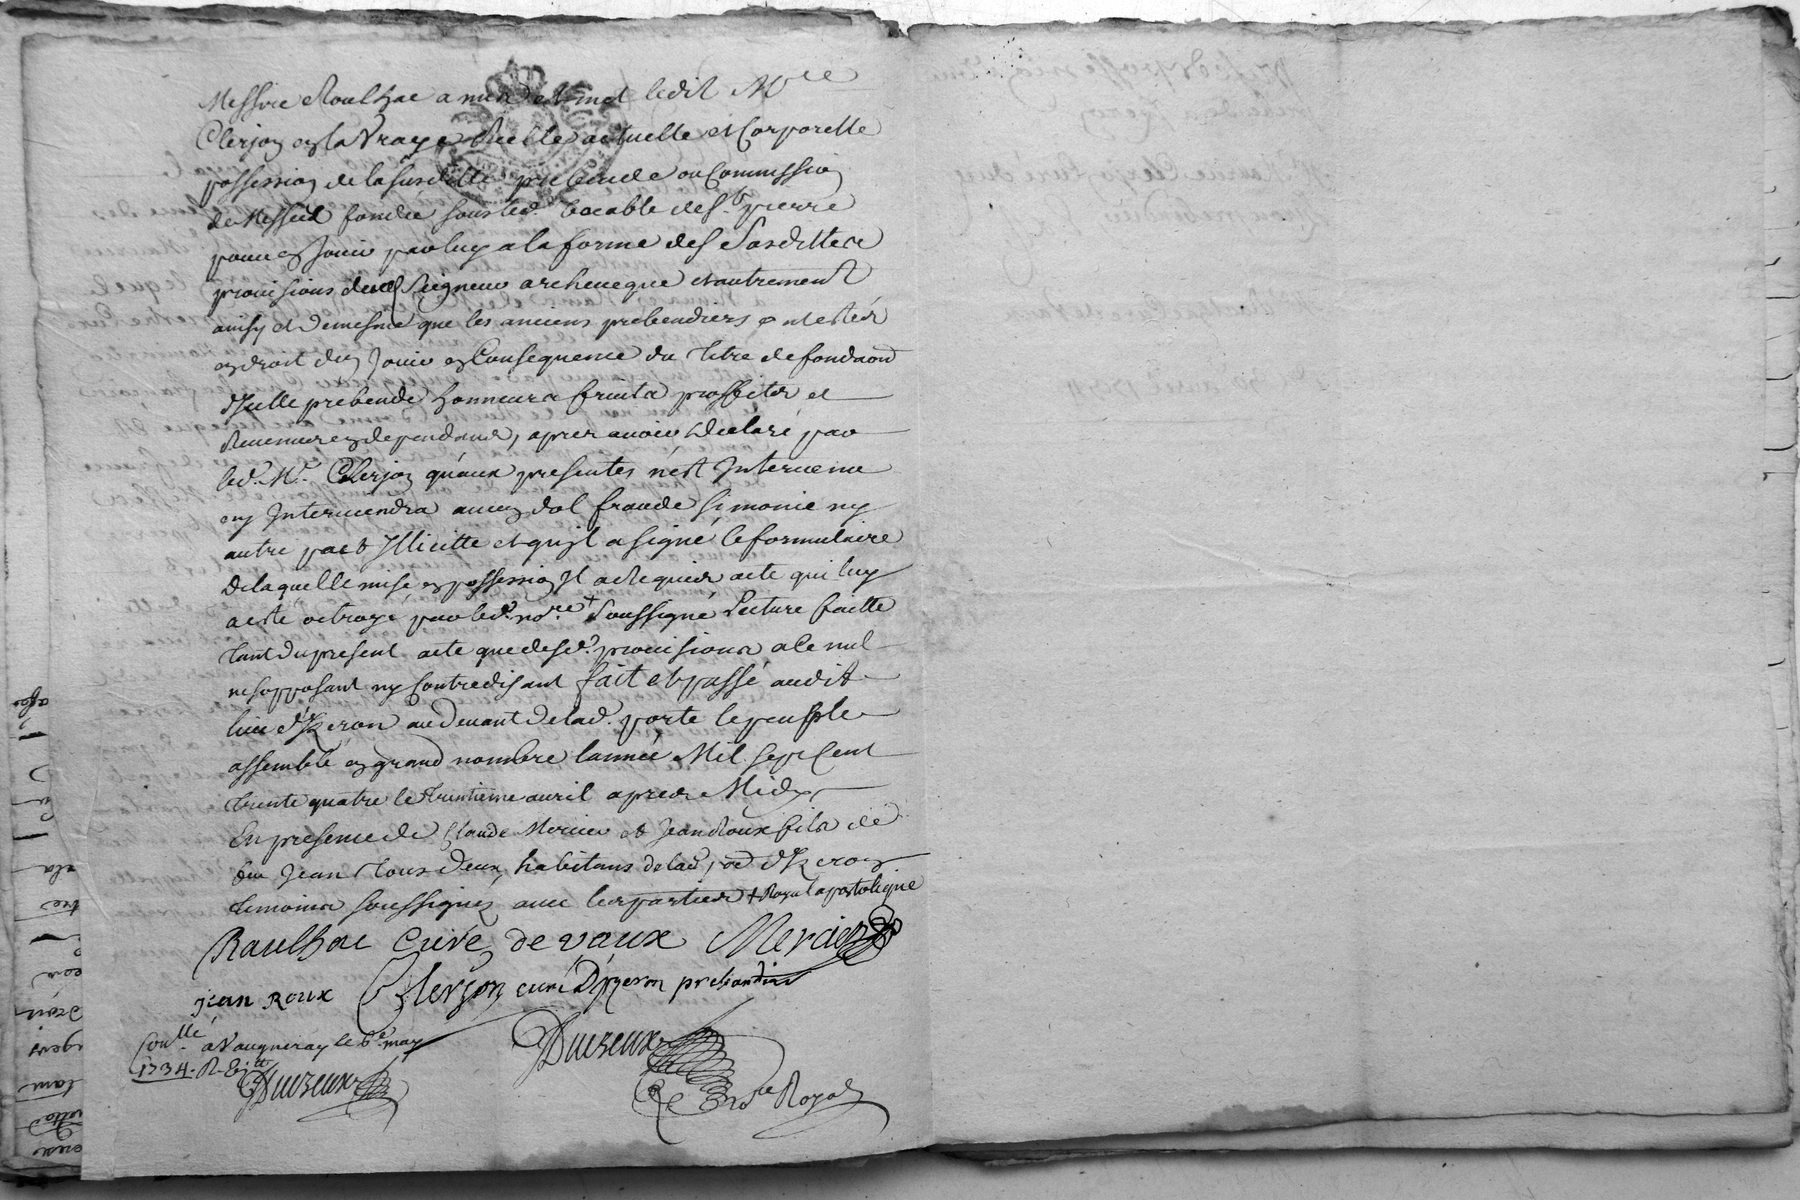 Messire Roulhac a mis et met ledit Mre
Clerjon en la Vraye Reelle actuelle et Corporelle
possession de la susditte prebende ou Commission
de Messes fondée sous led. Vocable de St. pierre
pour en Jouir par luy a la forme des Susdittes
provisions dud. Seigneur archeveque et autrement
ainsy et demesme que les anciens prebendiers ont esté en
en droit d'en Jouir en Consequence du titre de fondaon
d'Icelle prebende honneurs fruits proffits et
Revenus en dependans, apres avoir declaré par
led. Mre. Clerjon qu'aux presentes n'est Intervenu
ny Interviendra aucun dol fraude simonie ny
autre pact Illicitte et qu'il a signé le formulaire
De laquelle mise en possession Il a Requis acte qui luy
a esté octroyé par led. nore. + Soussigné Lecture faitte
tant du present acte que desd. provisions a ce nul
ne s'opposant ny Contredisant fait et passé audit
lieu d'Izeron au devant de lad. porte le peuple
assemblé en grand nombre l'année Mil sept Cent
trente quatre le trentieme avril apres Midy
En presence de Claude Mercier et Jean Roux fils de
feu Jean tous deux habitans de lad. pse d'Izeron
temoins soussignez avec les parties + Royal apostolique
Raulhac Curé de vaux Mercier
jean Roux Clerjon curé D'izeron prebandier
Conllé à Vaugneray le 6e may
1734. R
Duizeux
Duizeux
Nore Royal